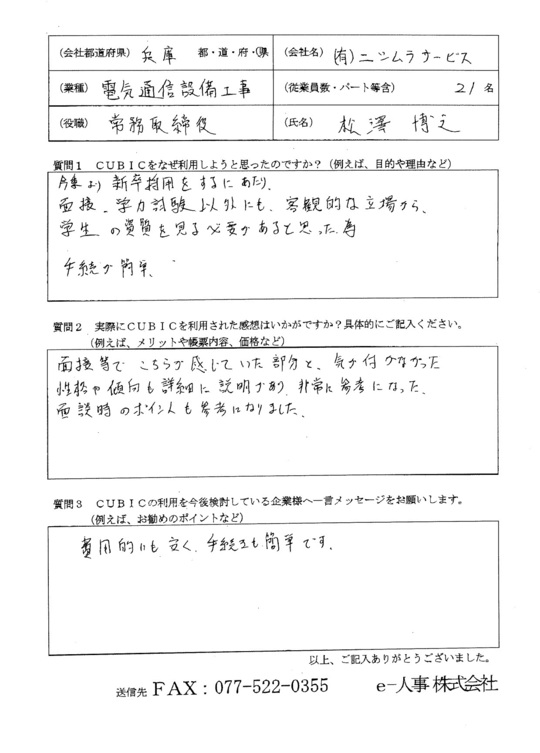 (会社都道府県) 兵庫 都・道・府・県 (会社名) (有)ニシムラサービス
(業種) 電気通信設備工事 (従業員数・パート等含) 21名
(役職) 常務取締役 (氏名) 松澤 博之
質問1 CUBICをなぜ利用しようと思ったのですか?(例えば、目的や理由など)
今季より新卒採用をするにあたり、
面接、学力試験以外にも、客観的な立場から、
学生の資質を見る必要があると思った為
手続が簡単、
質問2 実際にCUBICを利用された感想はいかがですか?具体的にご記入ください。
(例えば、メリットや帳票内容、価格など)
面接等でこちらが感じていた部分と、気が付かなかった
性格や傾向も詳細に説明があり、非常に参考になった、
面談時のポイントも参考になりました。
質問3 CUBICの利用を今後検討している企業様へ一言メッセージをお願いします。
(例えば、お勧めのポイントなど)
費用的にも安く、手続きも簡単です。
以上、ご記入ありがとうございました。
送信先 FAX:077-522-0355 e-人事株式会社